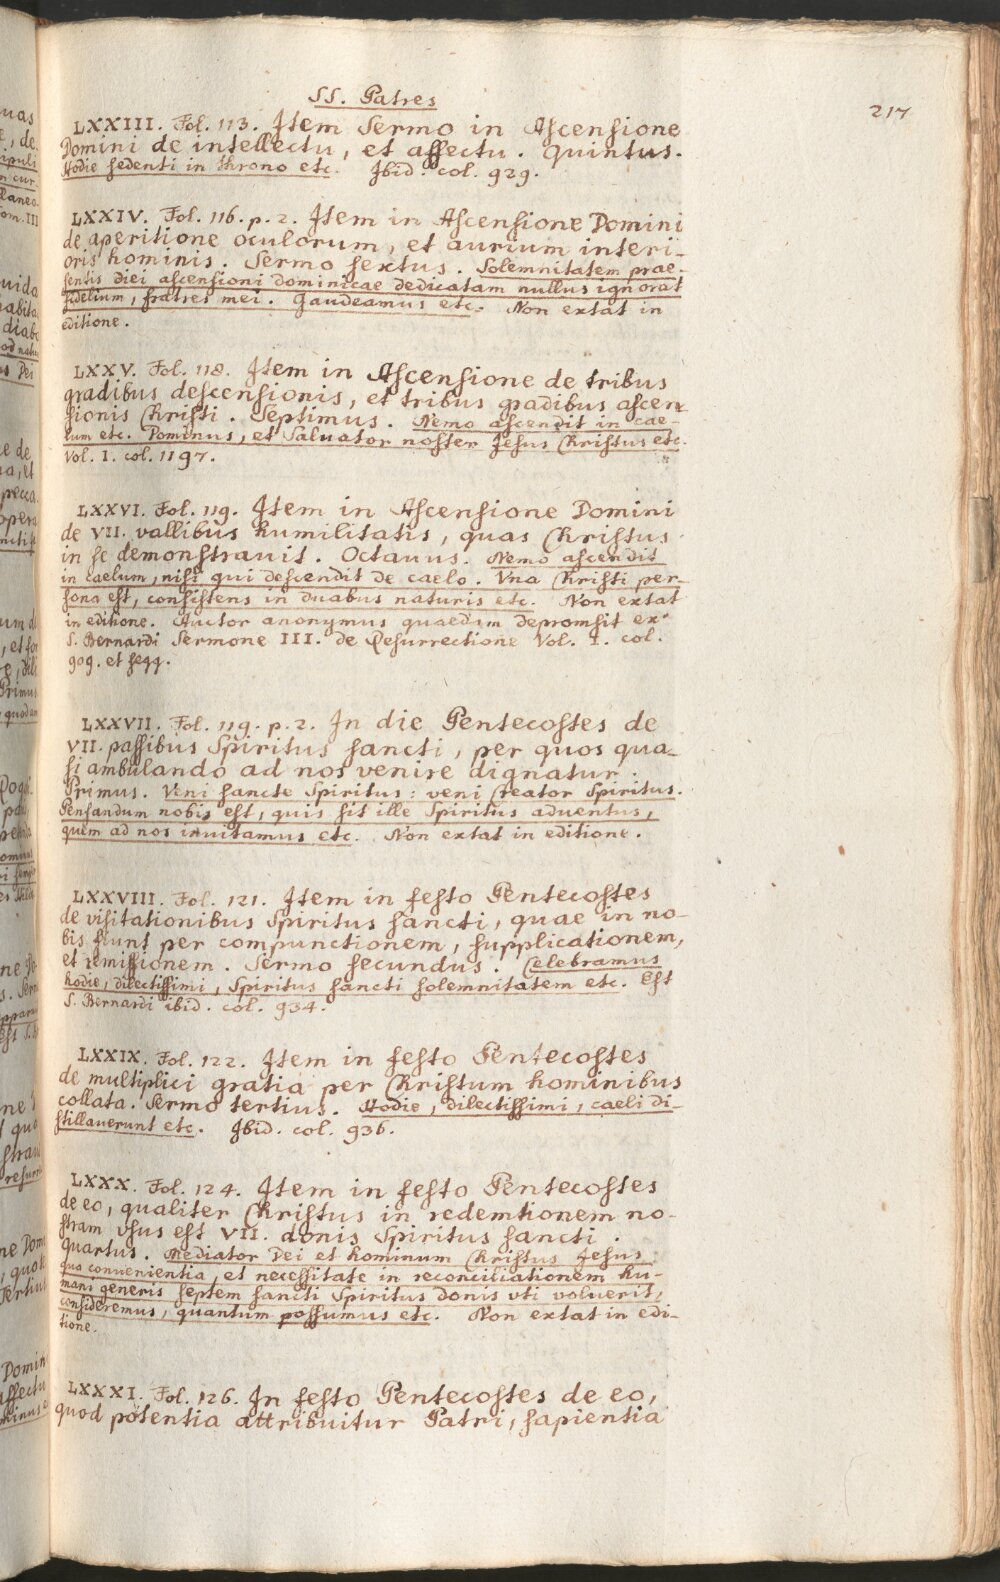 SS. Patres
217
LXXIII. Fol. 113. Item Sermo in Ascensione
Domini de intellectu, et affectu. Quintus.
Hodie sedenti in throno etc. Ibid. col. 929.
LXXIV. Fol. 116. p. 2. Item in Ascensione Domini
de aperitione oculorum, et aurium interi-
oris hominis. Sermo sextus. Solemnitatem prae-
sentis diei ascensioni dominicae dedicatam nullus ignorat
fidelium, fratres mei. Gaudeamus etc. Non extat in
editione.
LXXV. Fol. 118. Item in Ascensione de tribus
gradibus descensionis, et tribus gradibus ascen-
sionis Christi. Septimus. Nemo ascendit in cae-
lum etc. Dominus, et Saluator noster Jesus Christus etc.
Vol. I. col. 1197.
LXXVI. Fol. 119. Item in Ascensione Domini
de VII. vallibus humilitatis, quas Christus
in se demonstrauit. Octauus. Nemo ascendit
in caelum, nisi qui descendit de caelo. Vna Christi per-
sona est, consistens in duabus naturis etc. Non extat
in editione. Auctor anonymus quaedam depromsit ex
S. Bernardi Sermone III. de Resurrectione Vol. I. col.
909. et seqq.
LXXVII. Fol. 119. p. 2. In die Pentecostes de
VII. passibus Spiritus sancti, per quos qua-
si ambulando ad nos venire dignatur.
Primus. Veni sancte Spiritus: veni Creator Spiritus.
Pensandum nobis est, quis sit ille Spiritus aduentus,
quem ad nos inuitamus etc. Non extat in editione.
LXXVIII. Fol. 121. Item in festo Pentecostes
de visitationibus Spiritus sancti, quae in no-
bis fiunt per compunctionem, supplicationem,
et remissionem. Sermo secundus. Celebramus
hodie, dilectissimi, Spiritus sancti solemnitatem etc. Est
S. Bernardi ibid. col. 934.
LXXIX. Fol. 122. Item in festo Pentecostes
de multiplici gratia per Christum hominibus
collata. Sermo tertius. Hodie, dilectissimi, caeli di-
stillauerunt etc. Ibid. col. 936.
LXXX. Fol. 124. Item in festo Pentecostes
de eo, qualiter Christus in redemtionem no-
stram vsus est VII. donis Spiritus sancti.
Quartus. Mediator Dei et hominum Christus Jesus
qua conuenientia, et necessitate in reconciliationem hu-
mani generis septem sancti Spiritus donis vti voluerit,
consideremus, quantum possumus etc. Non extat in edi-
tione.
LXXXI. Fol. 126. In festo Pentecostes de eo,
quod potentia attribuitur Patri, sapientia